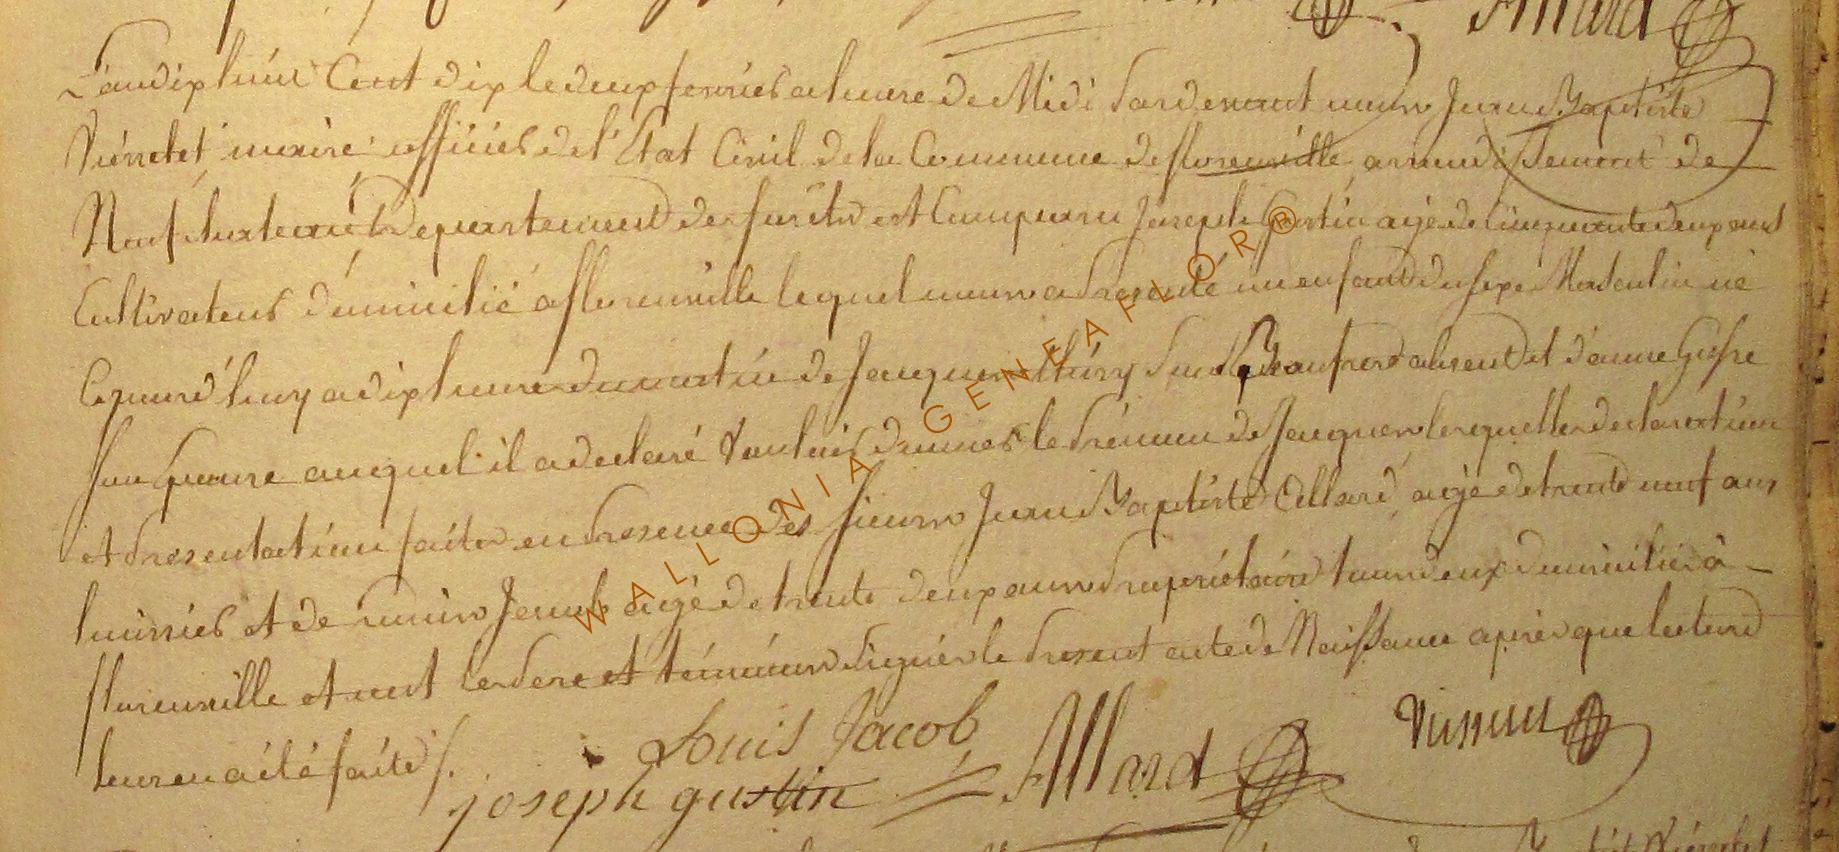 Allard
L'an dix huit Cent dix le deux fevrier a heure de Midi Pardevant nous Jean Baptiste
maire officier de l'Etat Civil de la Commune de florenville arrondissement de
Neufchateau departement de forêts est Comparu Joseph Gustin agé de Cinquante deux ans
Cultivateur domicilié a florenville lequel nous a presenté un enfant du sexe Masculin né
Cejourd'huy a dix heure du matin de Jacques Son Beaufrere absent et d'anne
Son Epouse auquel il a declaré Vouloir donner le prénom de Jacques lesquelles declaration
et presentation faite en presence des sieurs Jean Baptiste Allard agé de trente neuf ans
huissier et de Louis Jacob agé de trente deux ans propriétaire tous deux domicilié à
florenville et ont les pere et témoins signés le present acte de Naissance après que lecture
leur en a été faite /.
Louis Jacob
joseph gustin
Allard
WALLONIA GENEAFLOR®